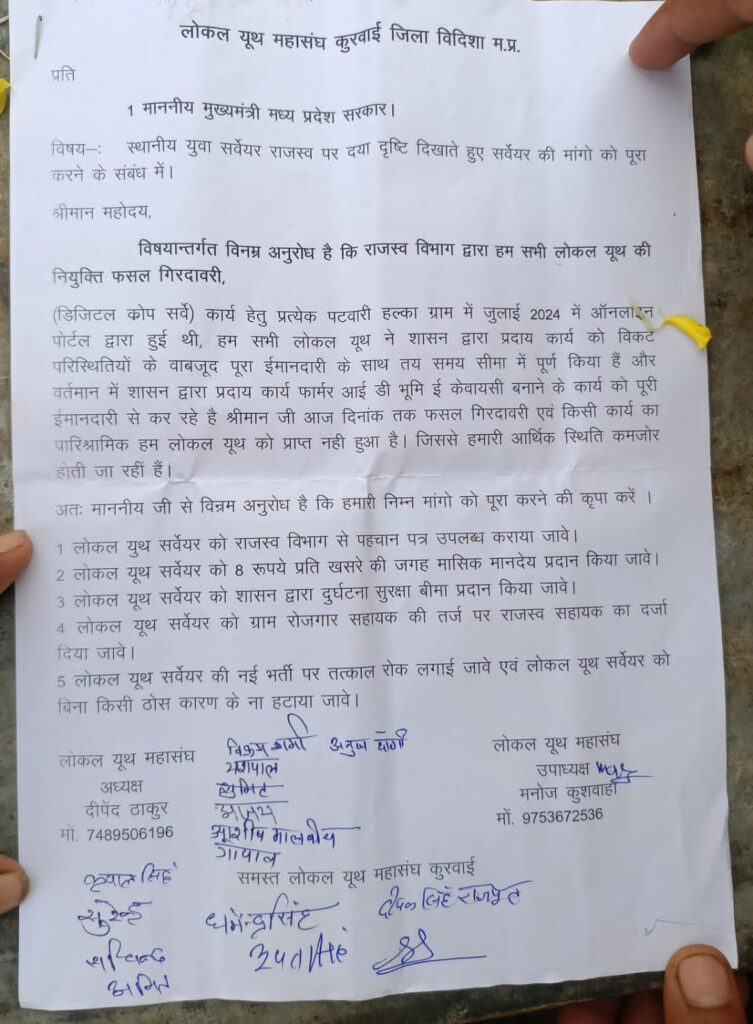 लोकल यूथ महासंघ कुरवाई जिला विदिशा म.प्र.
प्रति
1 माननीय मुख्यमंत्री मध्य प्रदेश सरकार।
विषय–: स्थानीय युवा सर्वेयर राजस्व पर दया दृष्टि दिखाते हुए सर्वेयर की मांगो को पूरा
करने के संबंध में।
श्रीमान महोदय,
विषयान्तर्गत विनम्र अनुरोध है कि राजस्व विभाग द्वारा हम सभी लोकल यूथ की
नियुक्ति फसल गिरदावरी,
(डिजिटल क्रोप सर्वे) कार्य हेतु प्रत्येक पटवारी हल्का ग्राम में जुलाई 2024 में ऑनलाइन
पोर्टल द्वारा हुई थी, हम सभी लोकल यूथ ने शासन द्वारा प्रदाय कार्य को विकट
परिस्थितियों के वाबजूद पूरा ईमानदारी के साथ तय समय सीमा में पूर्ण किया हैं और
वर्तमान में शासन द्वारा प्रदाय कार्य फार्मर आई डी भूमि ई केवायसी बनाने के कार्य को पूरी
ईमानदारी से कर रहे है श्रीमान जी आज दिनांक तक फसल गिरदावरी एवं किसी कार्य का
पारिश्रामिक हम लोकल यूथ को प्राप्त नही हुआ है। जिससे हमारी आर्थिक स्थिति कमजोर
होती जा रहीं हैं।
अतः माननीय जी से विन्रम अनुरोध है कि हमारी निम्न मांगो को पूरा करने की कृपा करें ।
1 लोकल युथ सर्वेयर को राजस्व विभाग से पहचान पत्र उपलब्ध कराया जावे।
2 लोकल यूथ सर्वेयर को 8 रूपये प्रति खसरे की जगह मासिक मानदेय प्रदान किया जावे।
3 लोकल यूथ सर्वेयर को शासन द्वारा दुर्घटना सुरक्षा बीमा प्रदान किया जावे।
4 लोकल यूथ सर्वेयर को ग्राम रोजगार सहायक की तर्ज पर राजस्व सहायक का दर्जा
दिया जावे।
5 लोकल यूथ सर्वेयर की नई भर्ती पर तत्काल रोक लगाई जावे एवं लोकल यूथ सर्वेयर को
बिना किसी ठोस कारण के ना हटाया जावे।
लोकल यूथ महासंघ
अध्यक्ष
दीपेंद ठाकुर
मॉ. 7489506196
विक्रम शर्मी
यशपाल
सुमित
अजय
आशीष मालवीय
गोपाल
लोकल यूथ महासंघ
उपाध्यक्ष
मनोज कुशवाहा
मों. 9753672536
समस्त लोकल यूथ महासंघ कुरवाई
कृपाल सिंह
धर्मेन्द्रसिंह
दीपक सिंह राजपूत
अमित